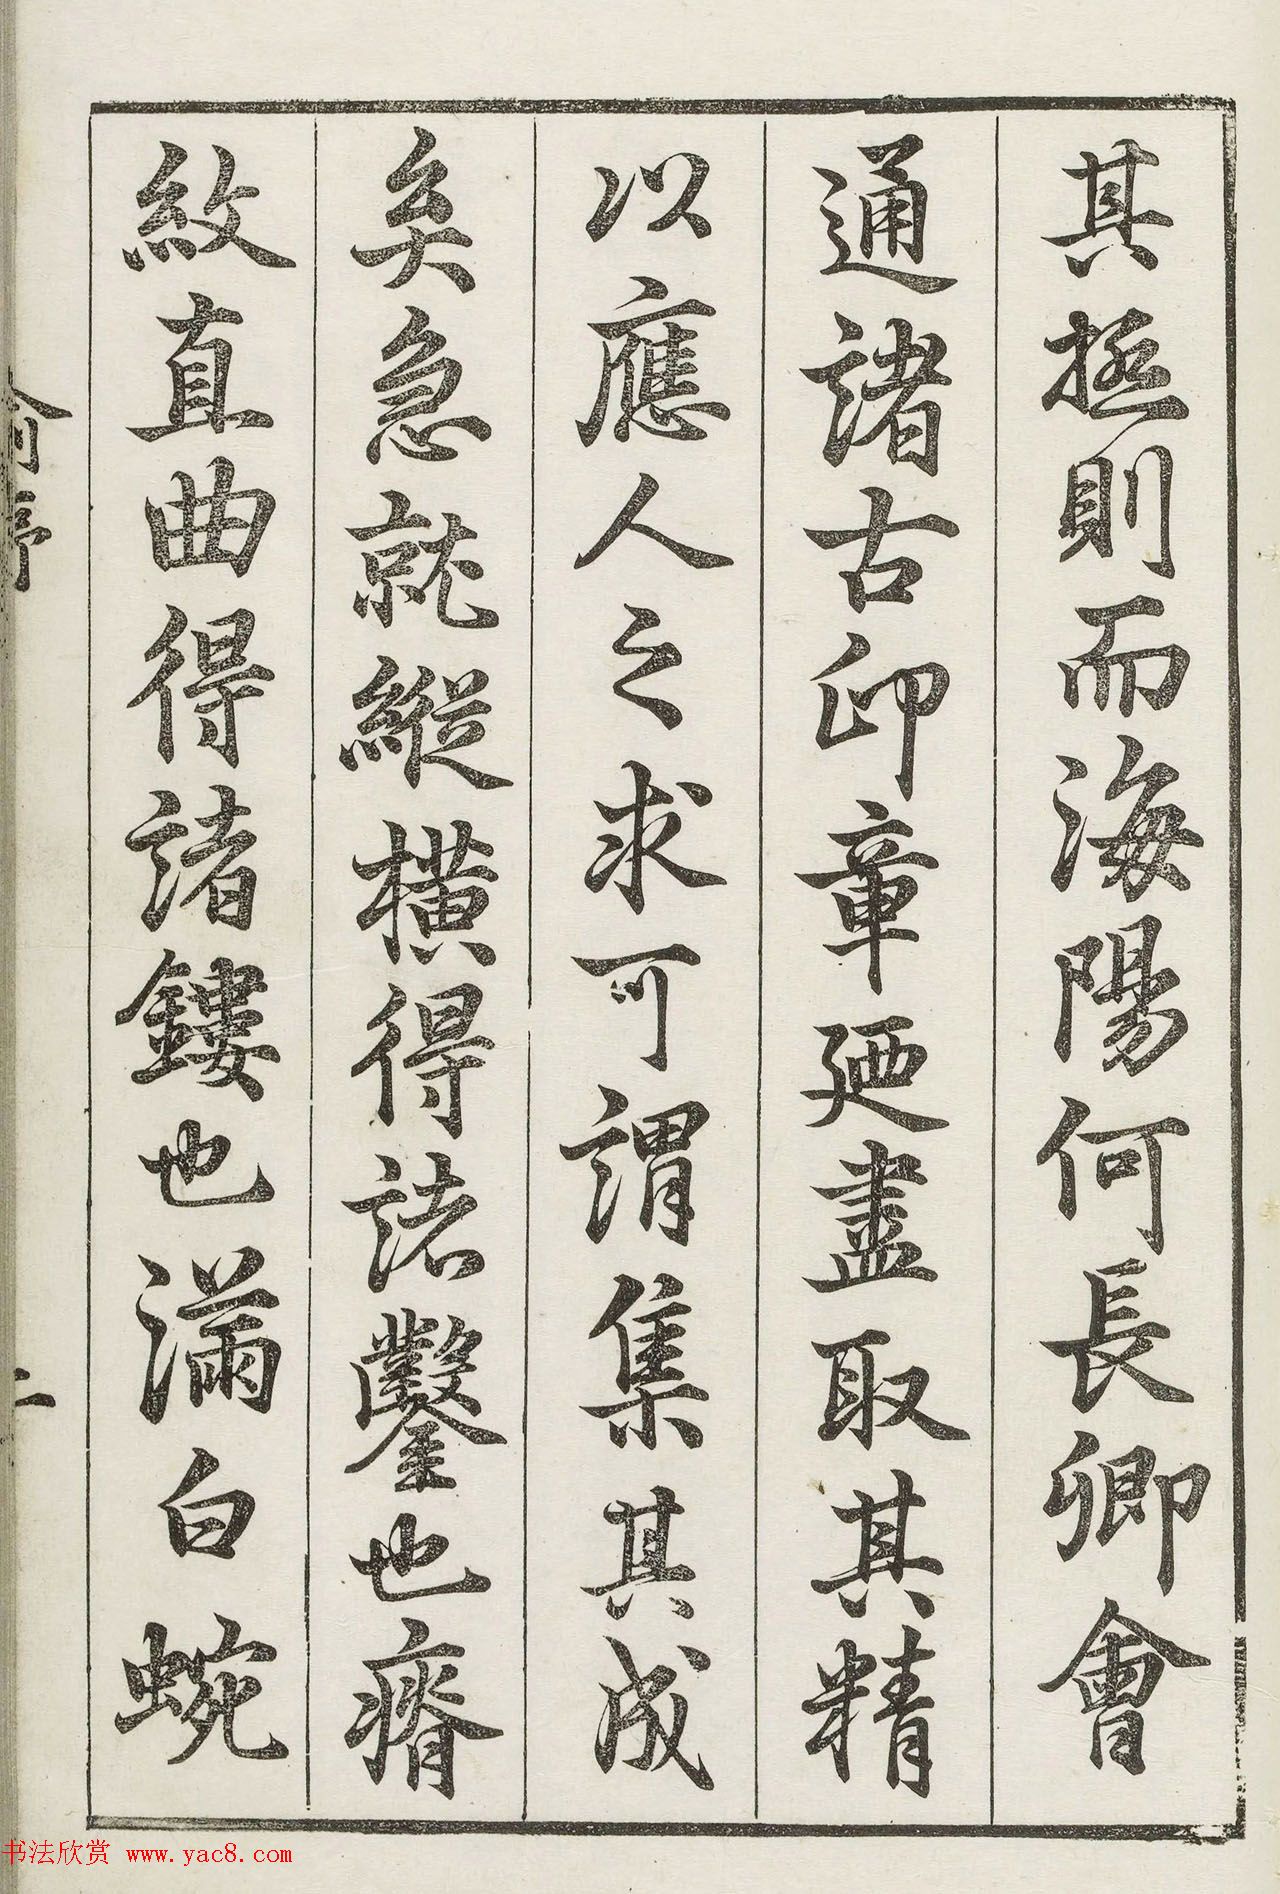 其極則而海陽何長卿會
通諸古印章廼盡取其精
以應人之求可謂集其成
矣急就縱橫得諸鑿也瘠
紋直曲得諸鏤也滿白蜿
俞序
二
书法欣赏 www.yac8.com